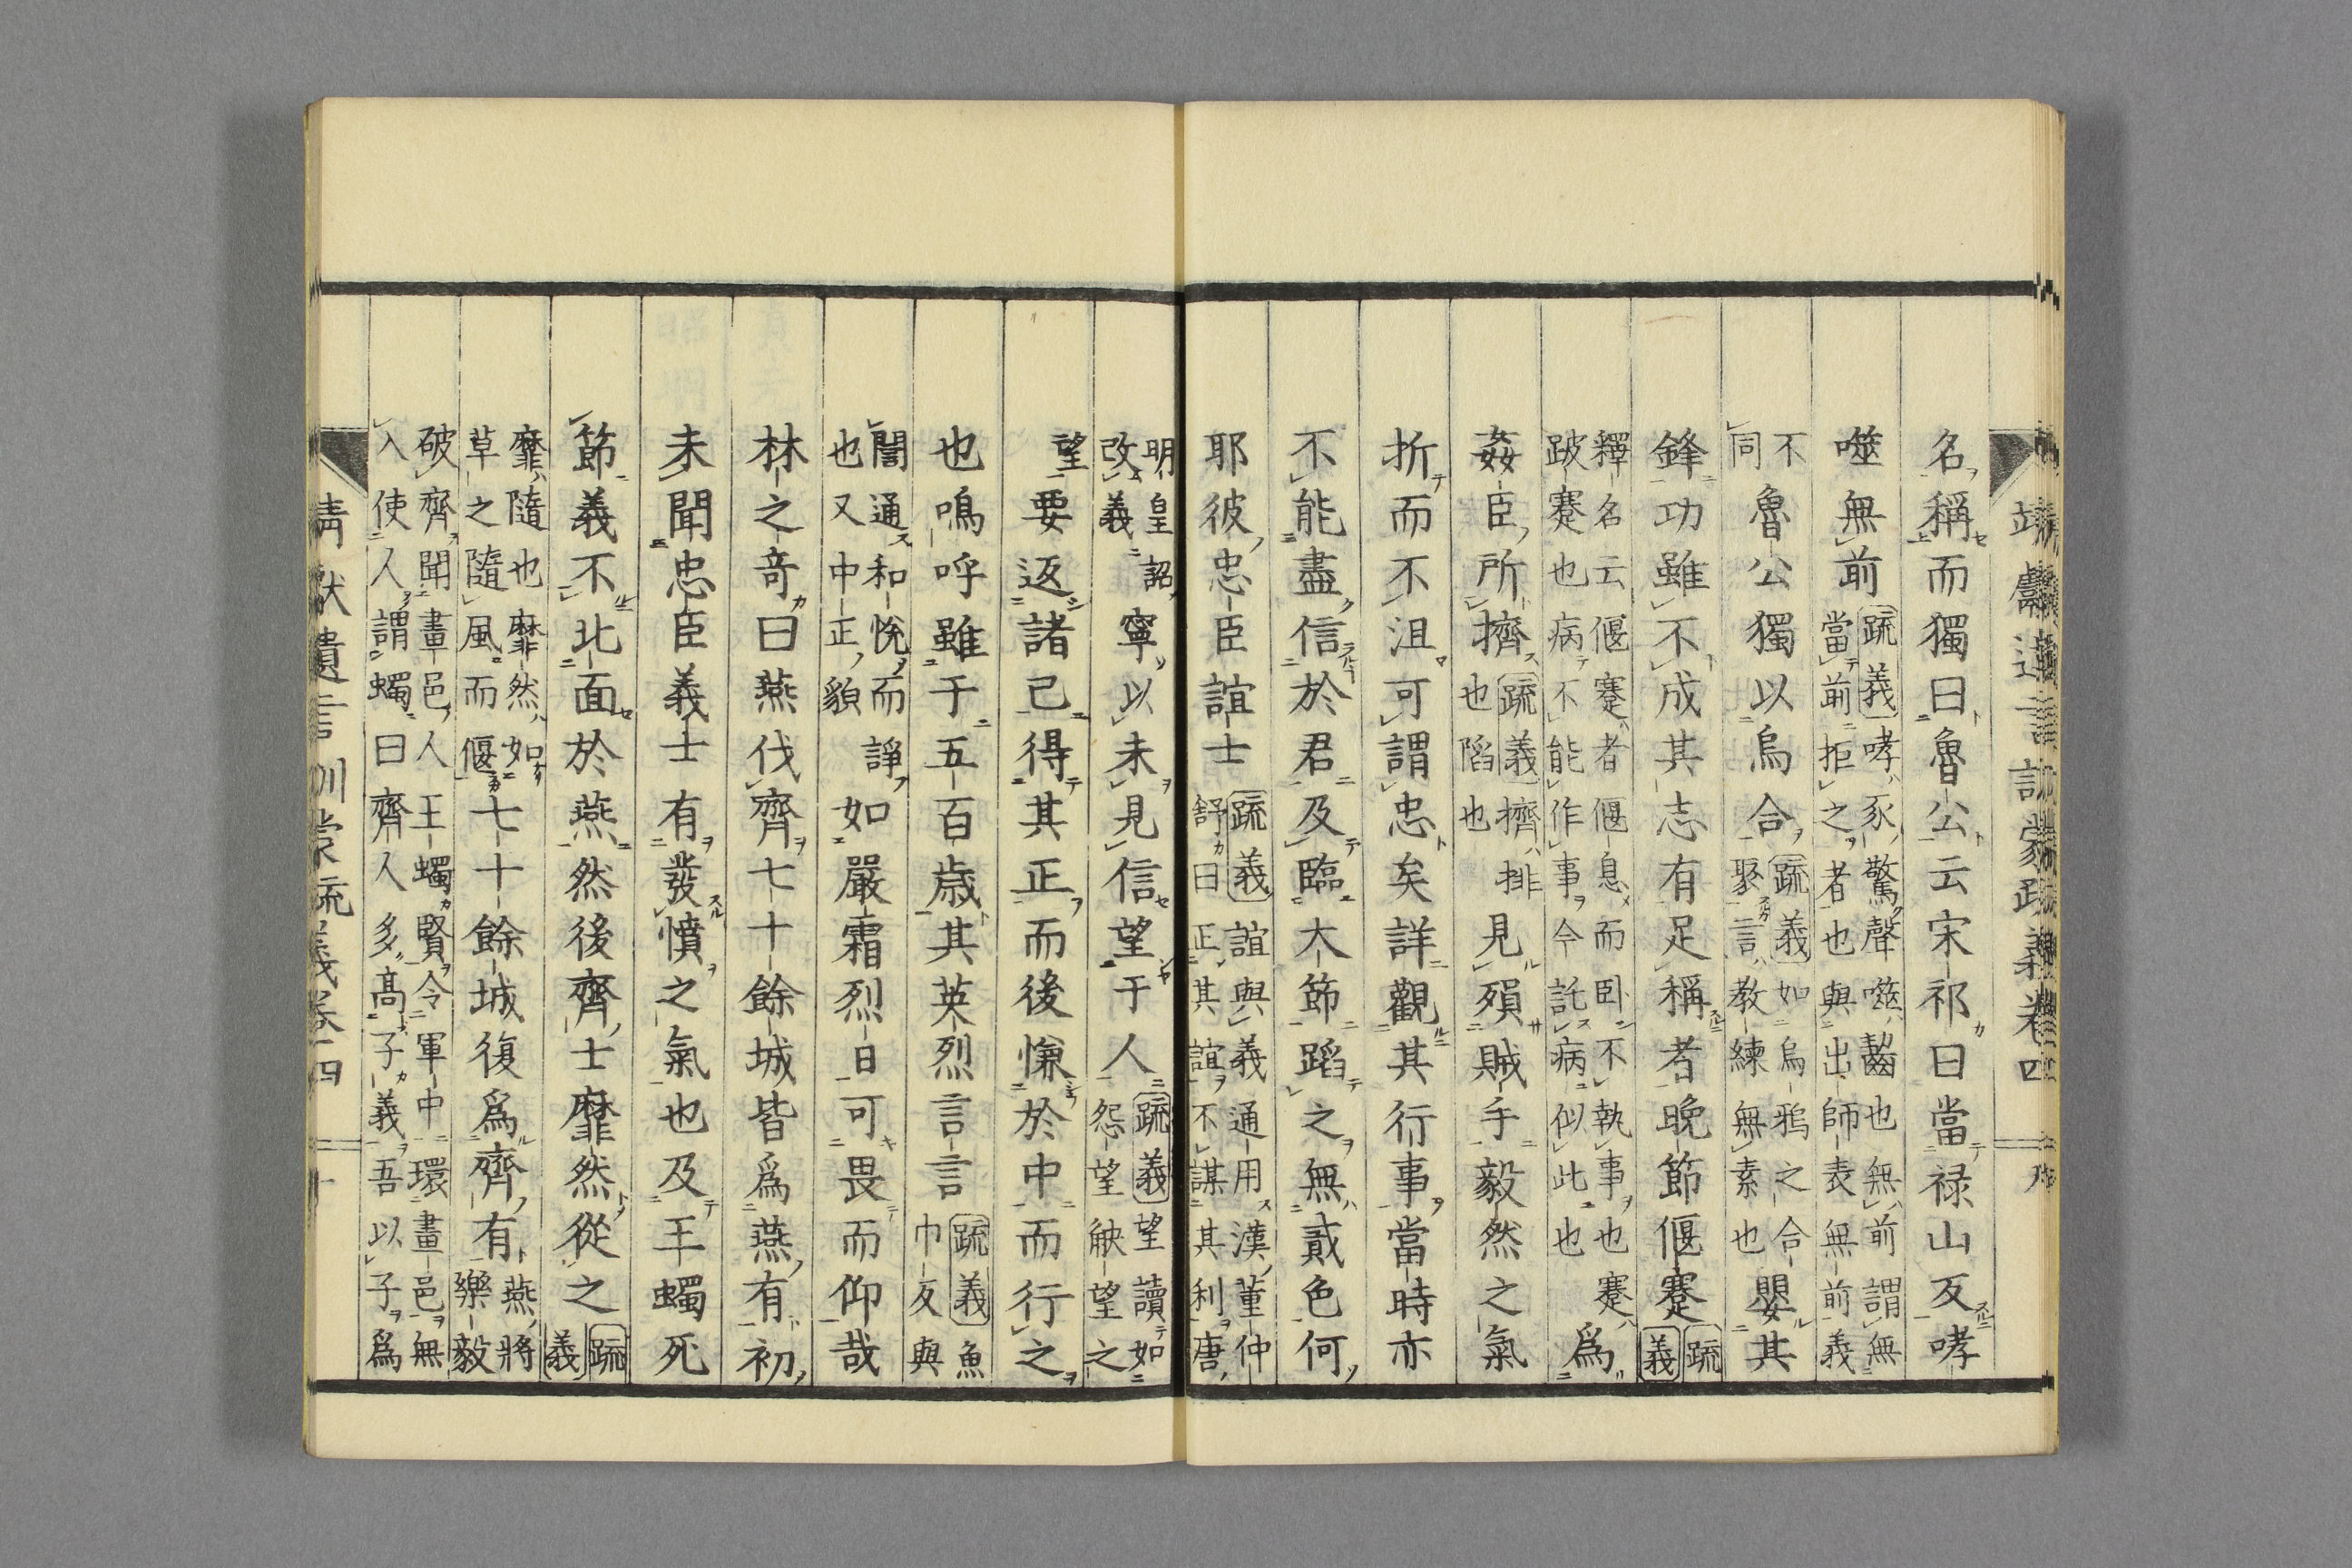 名稱而獨曰魯公云宋祁曰當祿山反哮
噬無前疏義哮豕驚聲噬齧也無前謂無當前拒之者也與出師表無前義
不同魯公獨以烏合疏義如烏鴉之合聚言教練無素也嬰其
鋒功雖不成其志有足稱者晚節偃蹇疏義
釋名云偃蹇者偃息而卧不執事也蹇跛蹇也病不能作事今託病似此也爲
姦臣所擠疏義擠排也陷也見殞賊手毅然之氣
折而不沮可謂忠矣詳觀其行事當時亦
不能盡信於君及臨大節蹈之無貳色何
耶彼忠臣誼士疏義誼與義通用漢董仲舒曰正其誼不謀其利唐
明皇詔改義寧以未見信望于人疏義望讀如怨望觖望之
望要返諸己得其正而後慊於中而行之
也嗚呼雖于五百歲其英烈言言疏義魚巾反與
誾通和悅而諍也又中正貌如嚴霜烈日可畏而仰哉
林之奇曰燕伐齊七十餘城皆爲燕有初
未聞忠臣義士有發憤之氣也及王蠋死
節義不北面於燕然後齊士靡然從之疏義
靡隨也靡然如草之隨風而偃七十餘城復爲齊有燕將樂毅
破齊聞畫邑人王蠋賢令軍中環畫邑無入使人謂蠋曰齊人多高子義吾以子爲